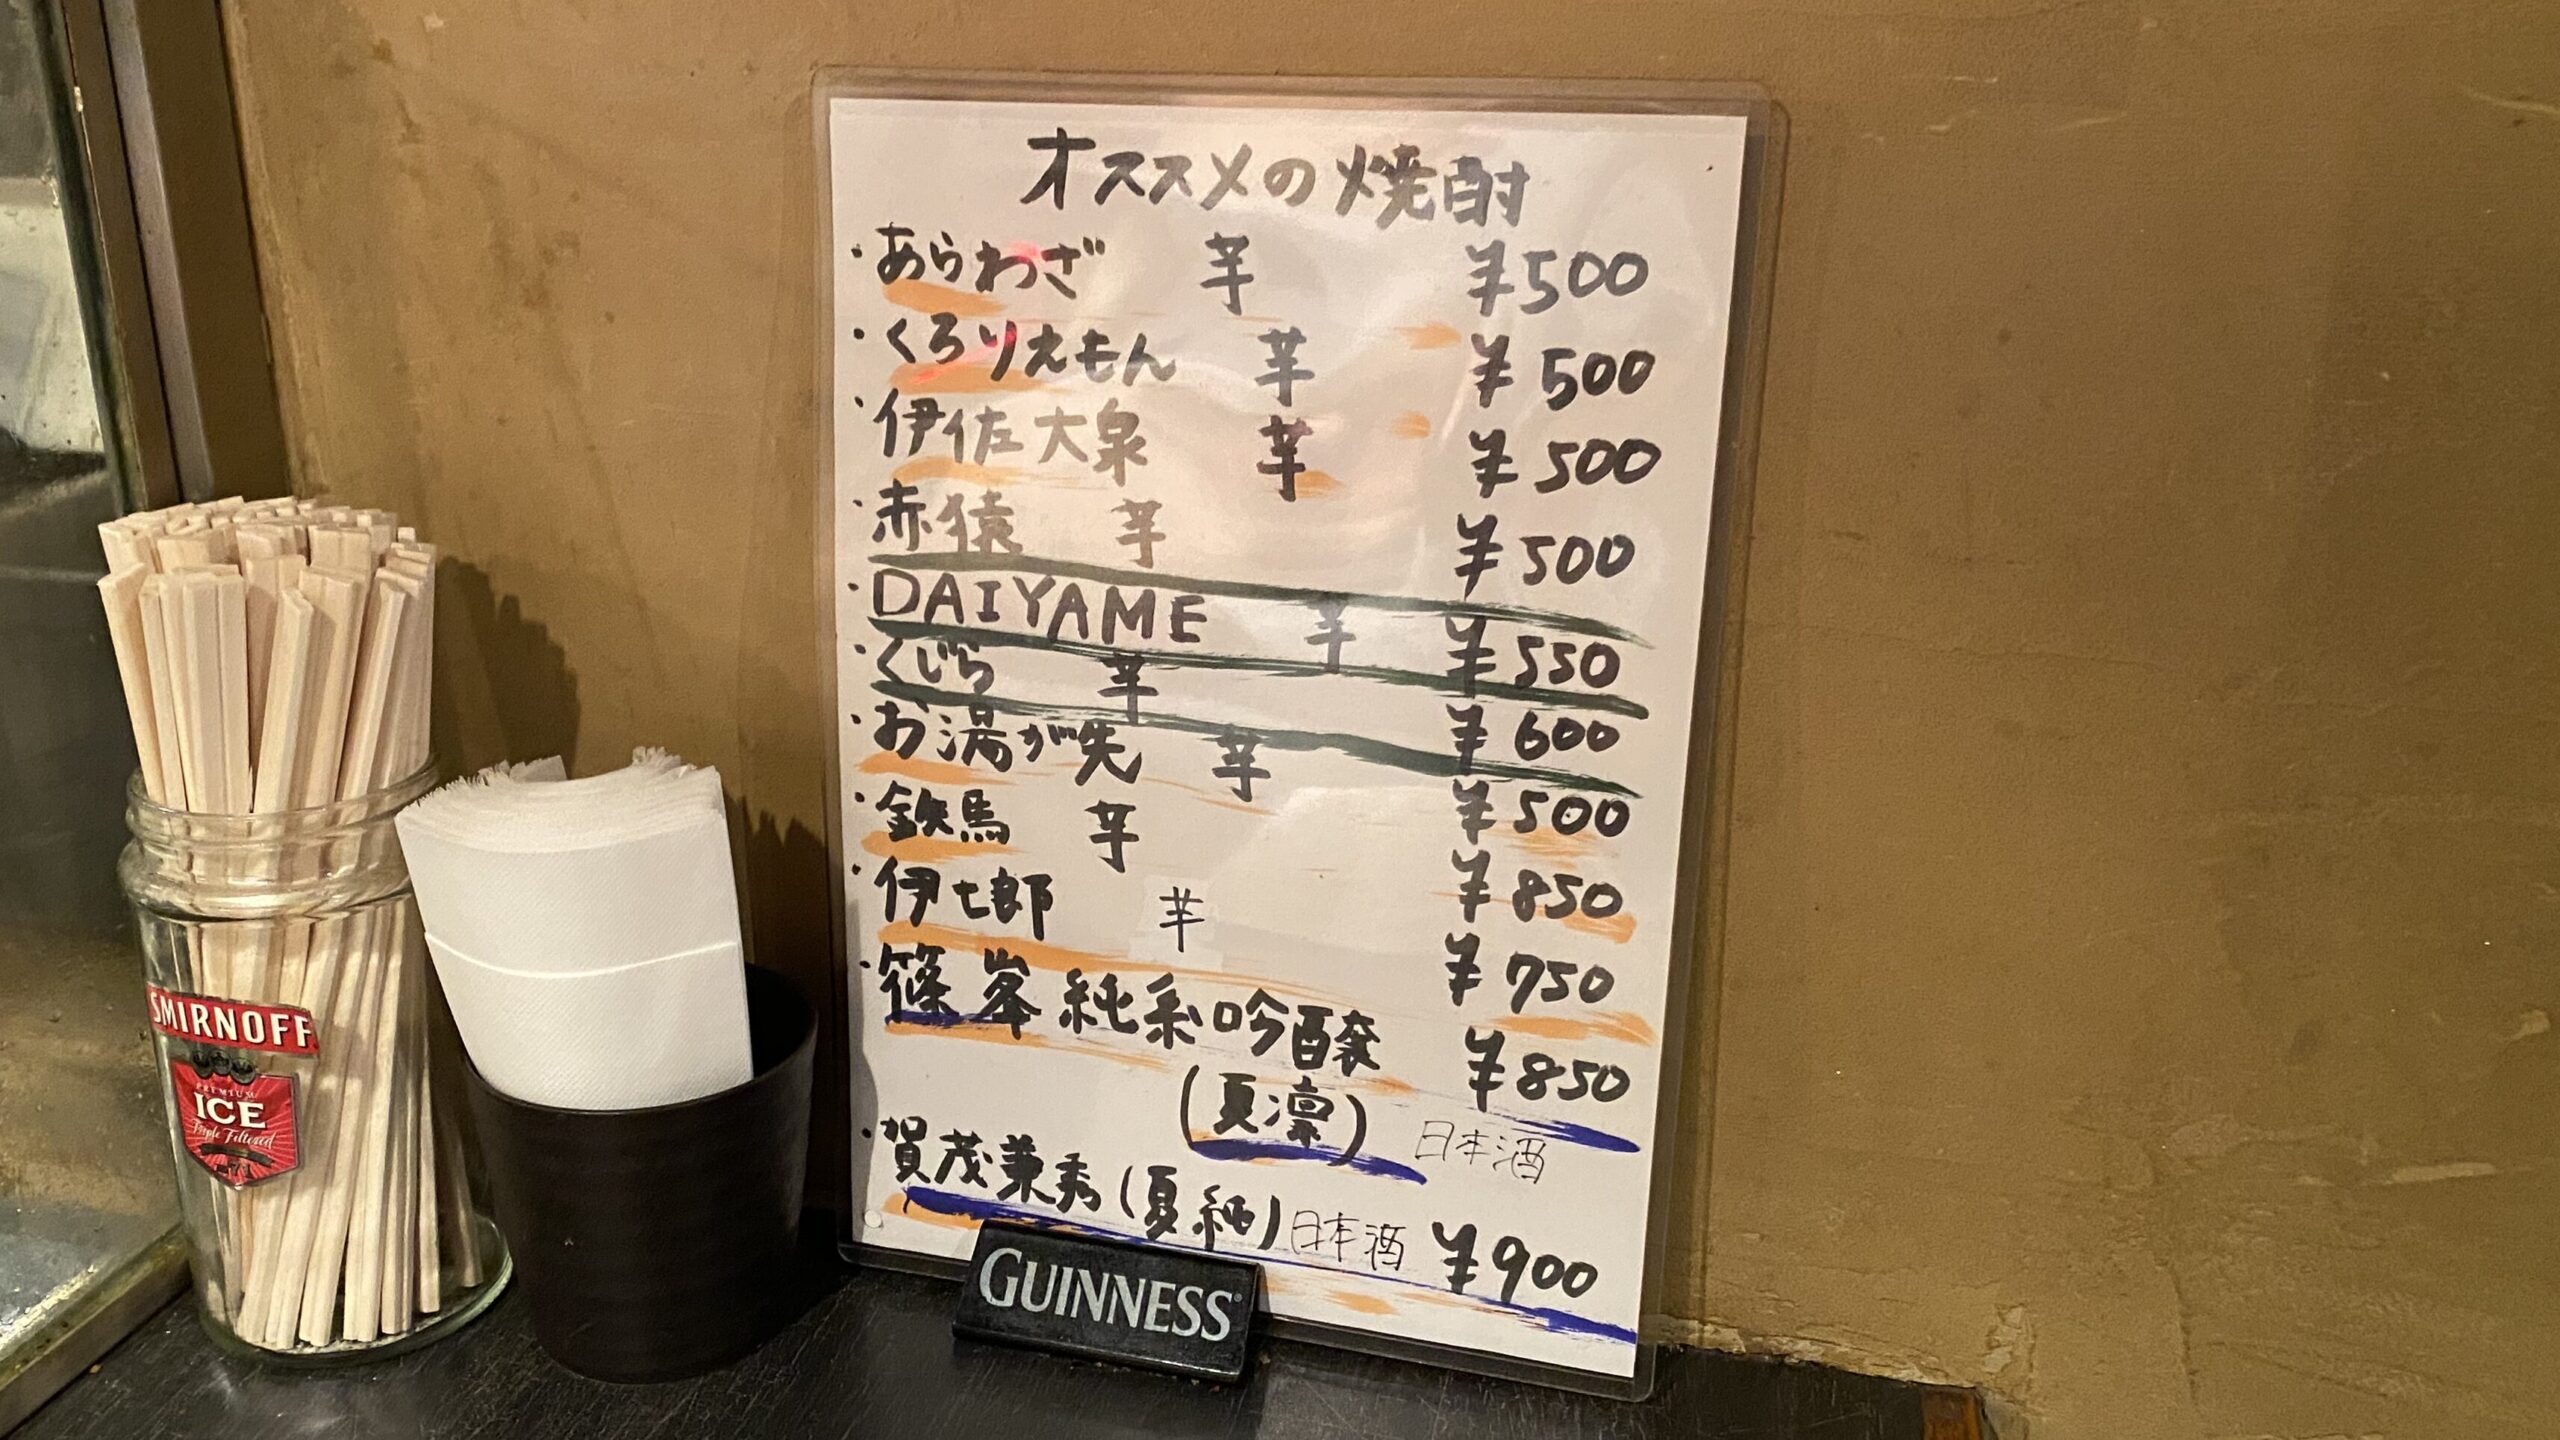 オススメの焼酎
・あらわざ 芋 ¥500
・くろりえもん 芋 ¥500
・伊佐大泉 芋 ¥500
・赤猿 芋 ¥500
・DAIYAME 芋 ¥550
・くじら 芋 ¥600
・お湯が先 芋 ¥500
・鉄馬 芋 ¥850
・伊七郎 芋 ¥750
・篠峯 純米吟醸 ¥850
(夏凛) 日本酒
・賀茂兼秀(夏純) 日本酒 ¥900
GUINNESS
SMIRNOFF
PREMIUM
ICE
Triple Filtered